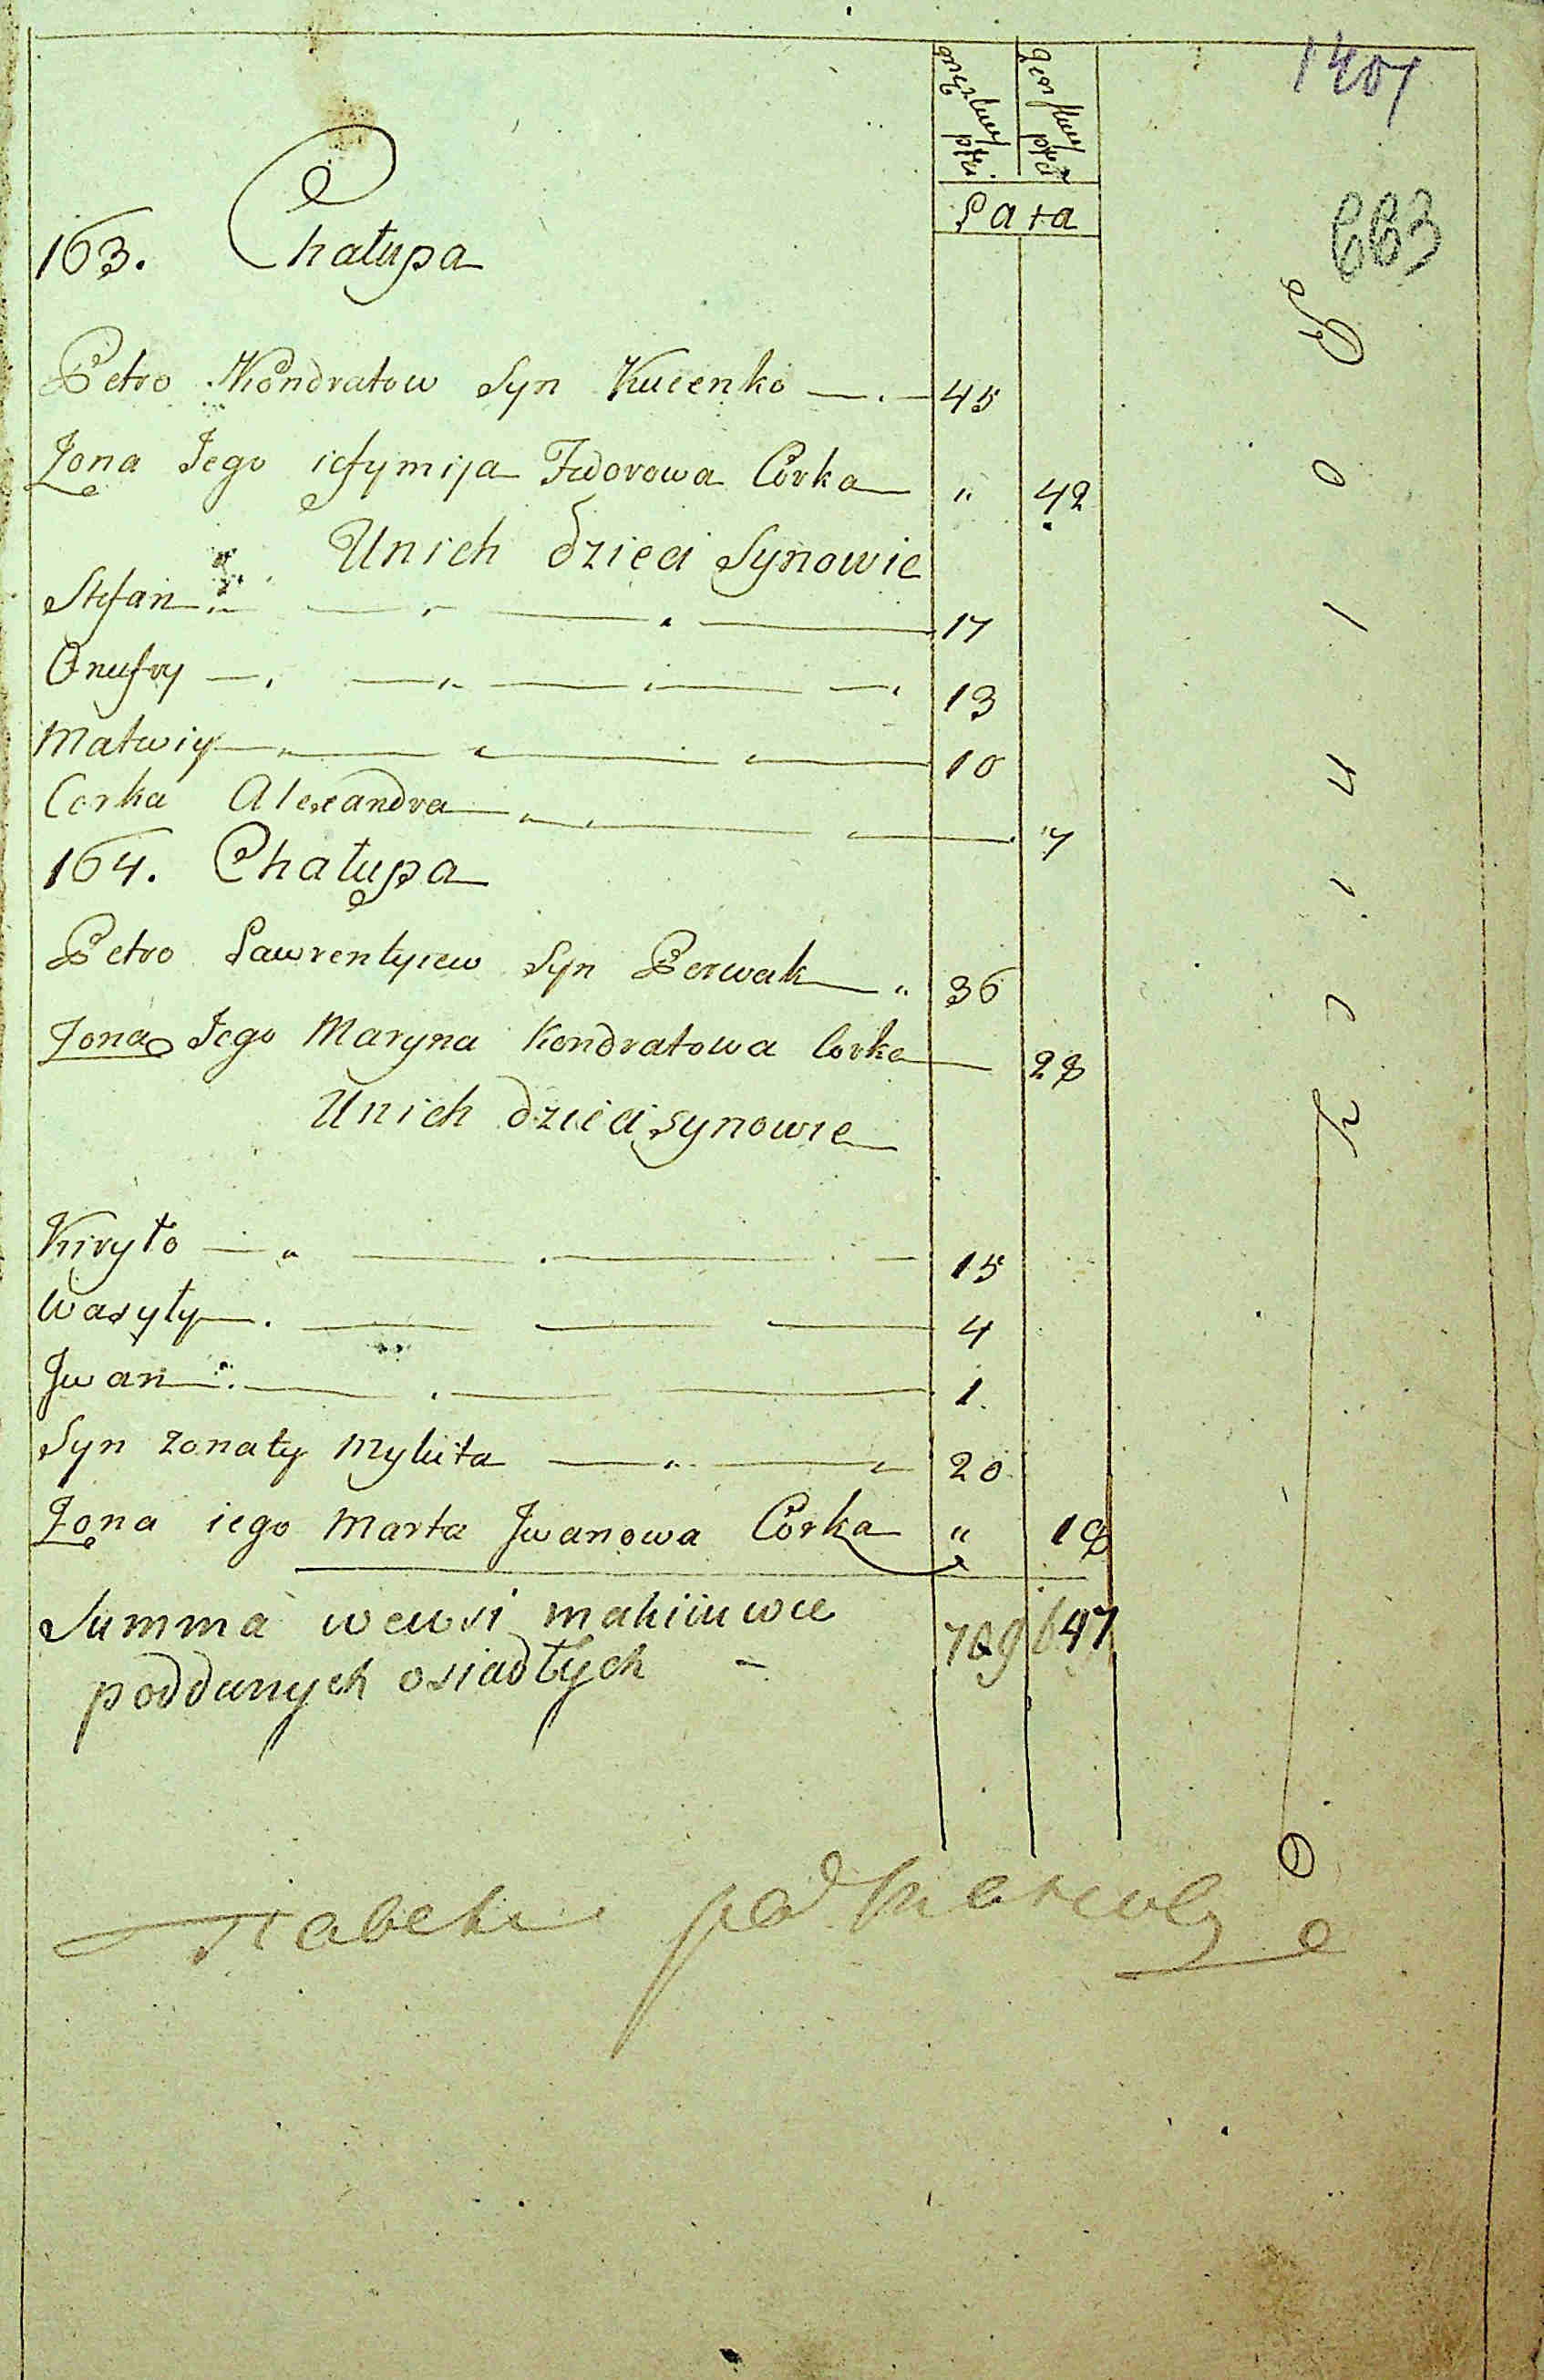 1401
663
męzkiey płci
żeńskiey płci
Lata
163. Chałupa
Petro Kondratow Syn Kucenko 45
Zona Jego iefymija Fedorowa Córka " 42
Unich dzieci Synowie
Stefan 17
Onufry 13
Matwiy 10
Corka Alexandra 7
164. Chałupa
Petro Lawrentyiew Syn Perwak " 36
Zona Jego Maryna Kondratowa Corka 28
Unich dzieci synowie
Kiryło 15
Wasyly 4
Jwan 1
Syn zonaty Mykita 20
Zona iego Marta Jwanowa Córka " 18
Summa wewsi makiiowce
poddanych osiadłych - 709 647